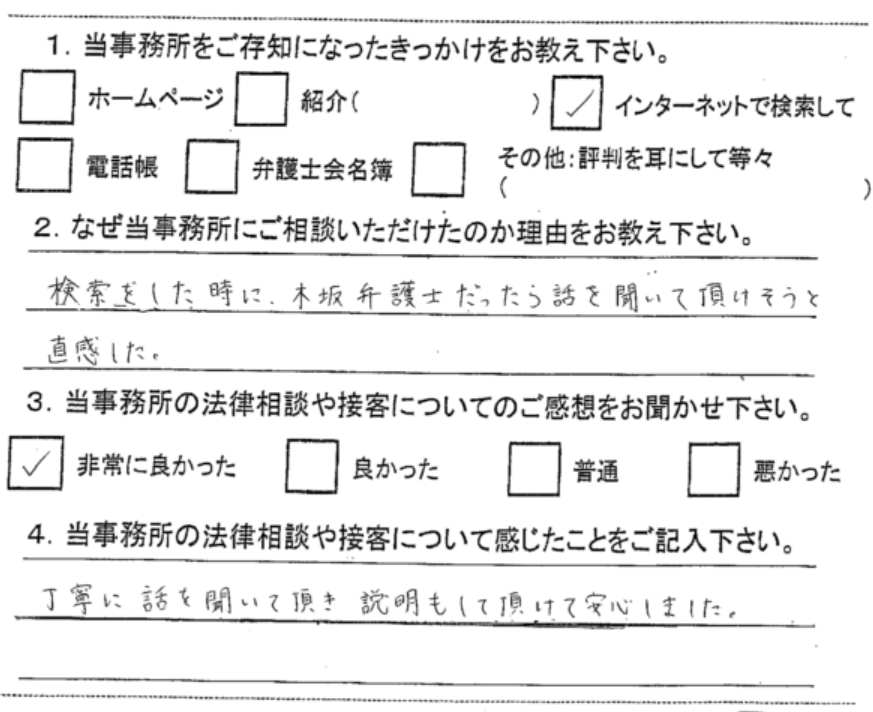 1. 当事務所をご存知になったきっかけをお教え下さい。
□ ホームページ □ 紹介( ) ☑ インターネットで検索して
□ 電話帳 □ 弁護士会名簿 □ その他:評判を耳にして等々
( )
2. なぜ当事務所にご相談いただけたのか理由をお教え下さい。
検索をした時に、木坂弁護士だったら話を聞いて頂けそうと
直感した。
3. 当事務所の法律相談や接客についてのご感想をお聞かせ下さい。
☑ 非常に良かった □ 良かった □ 普通 □ 悪かった
4. 当事務所の法律相談や接客について感じたことをご記入下さい。
丁寧に話を聞いて頂き 説明もして頂けて安心しました。